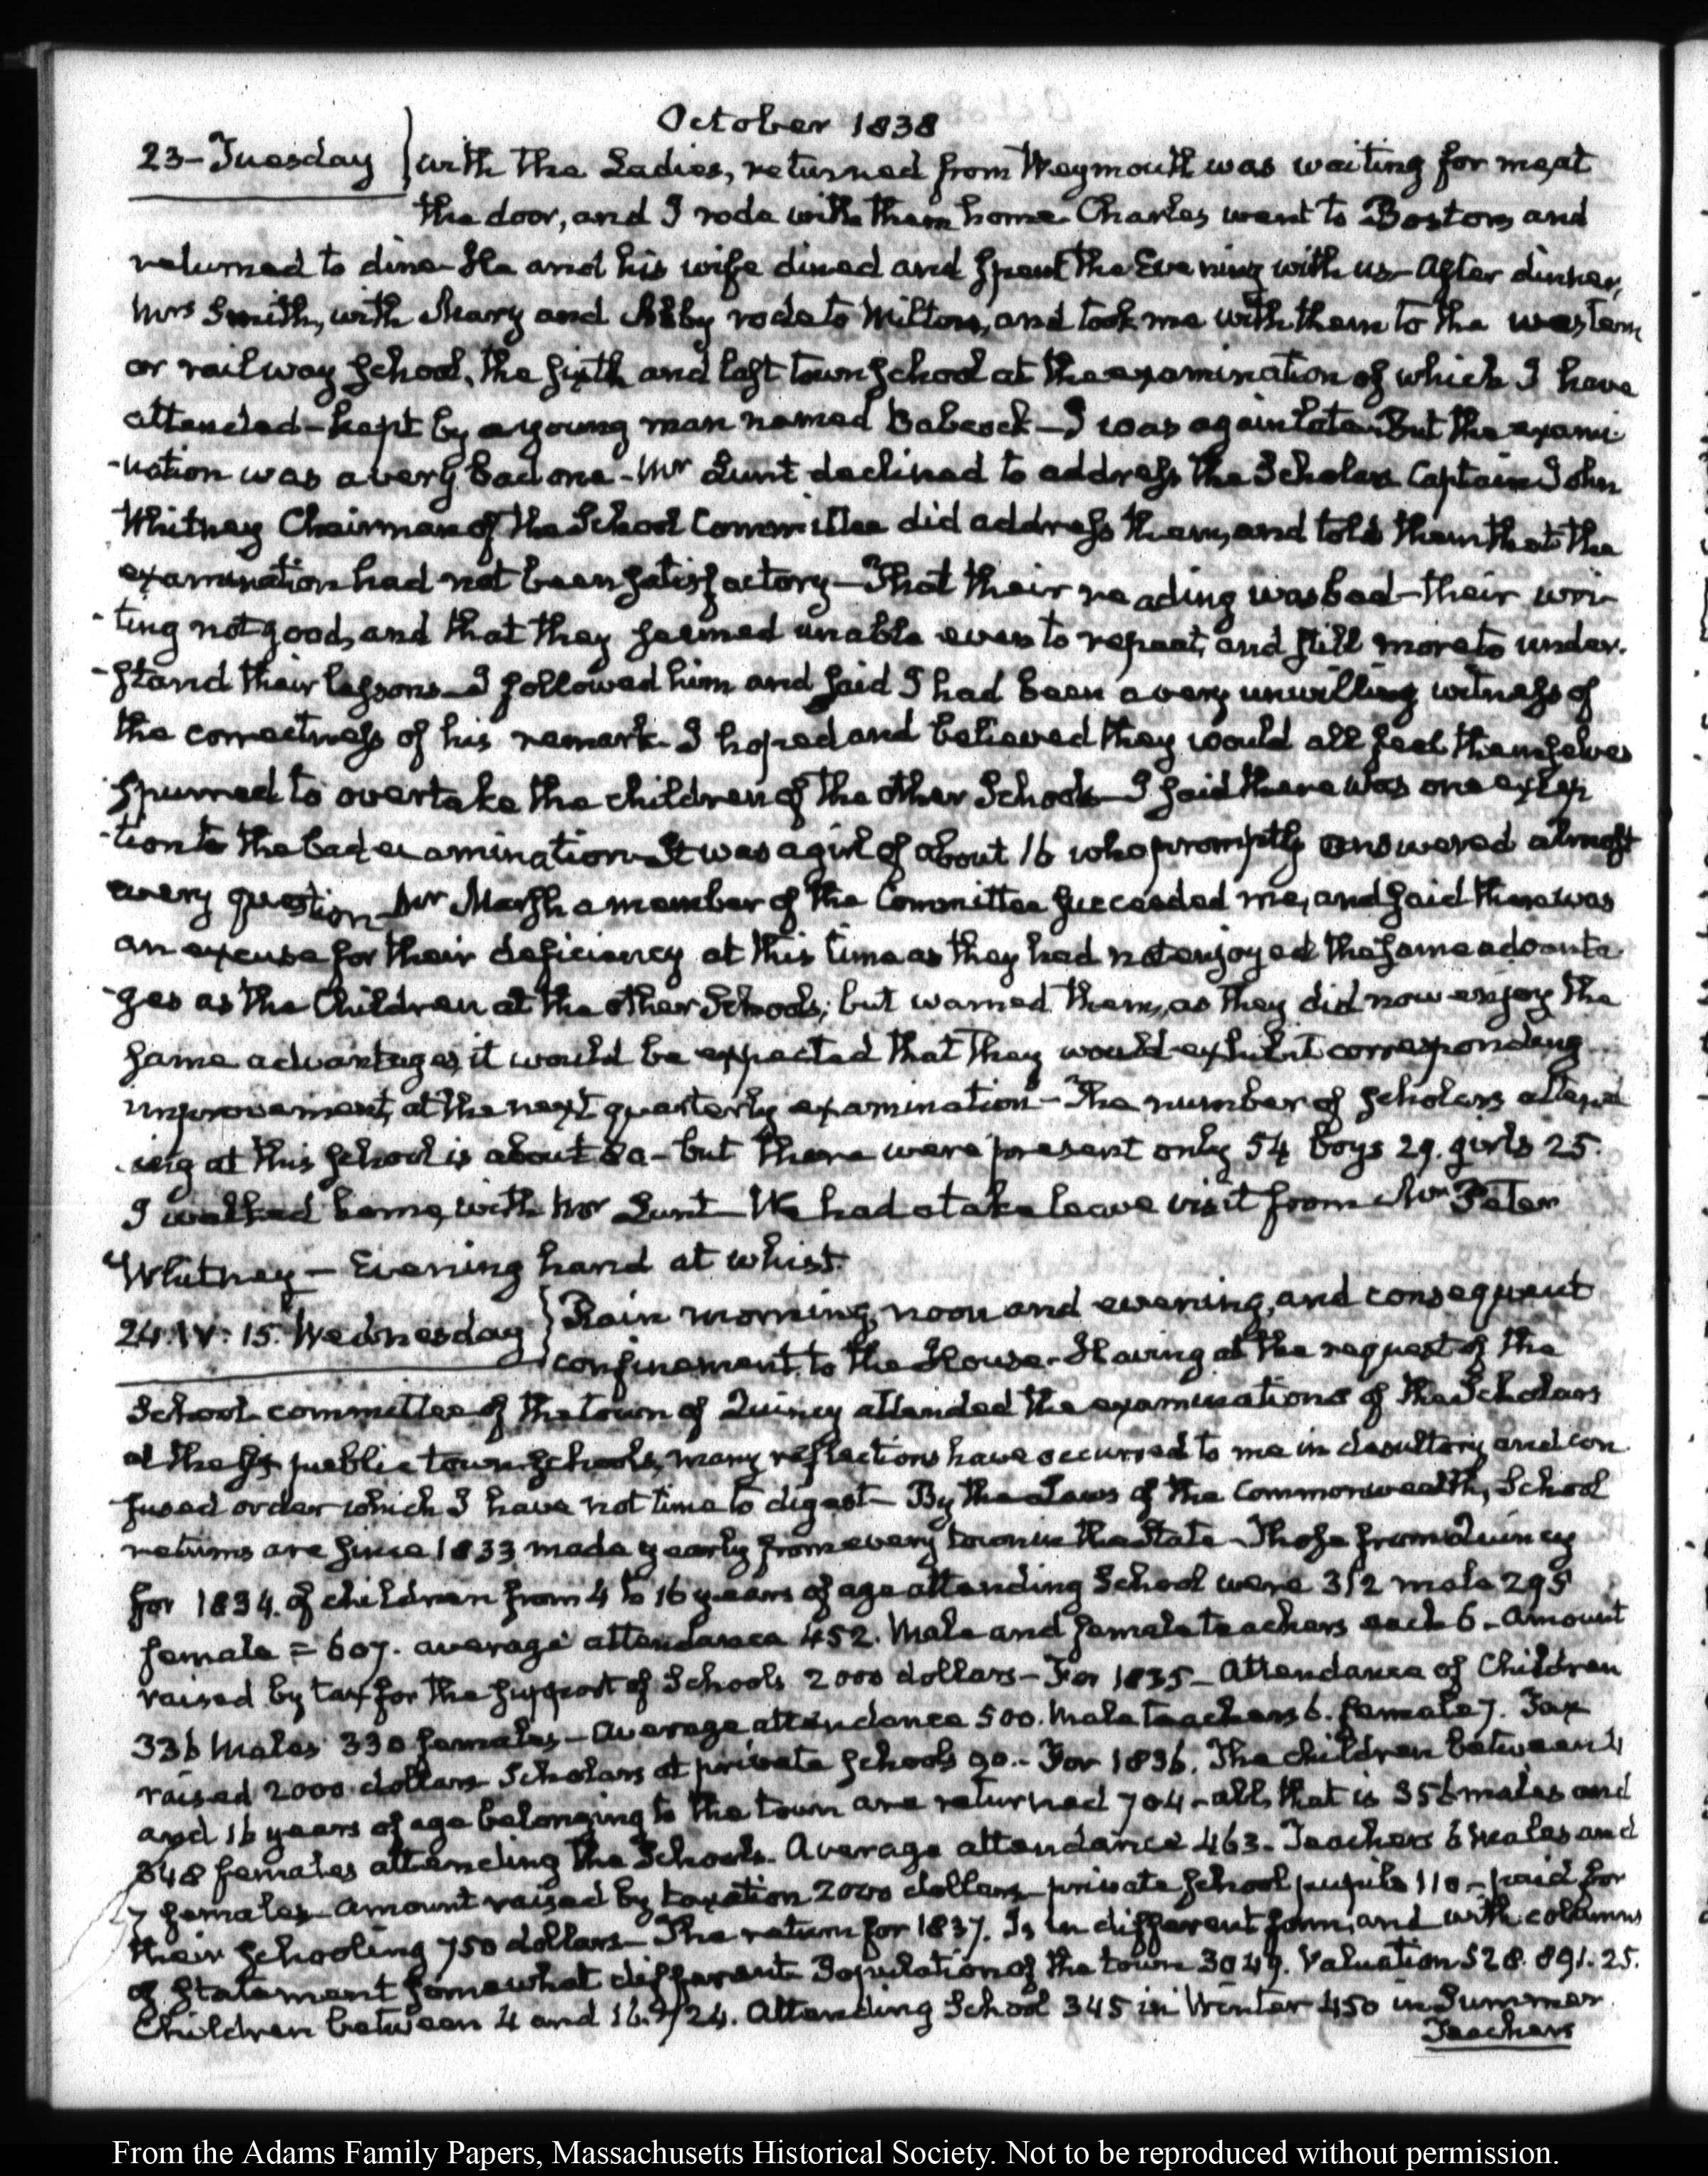 October 1838
23- Tuesday } with the Ladies, returned from Weymouth was waiting for me, at
the door, and I rode with them home. Charles went to Boston, and
returned to dine. He and his wife dined and spent the Evening with us- After dinner,
Mrs Smith, with Mary and Abby rode to Milton, and took me with them to the western
or railway School, the sixth and last town School at the examination of which I have
attended- kept by a young man named Babcock- I was again late. But the exami-
-nation was a very bad one- Mr Lunt declined to address the Scholars Captain John
Whitney Chairman of the School Committee did address them, and told them that the
examination had not been satisfactory- That their reading was bad- their wri-
-ting not good, and that they seemed unable even to repeat, and still more to under-
-stand their lessons- I followed him and said I had been a very unwilling witness of
the correctness of his remark- I hoped and believed they would all feel themselves
spurred to overtake the children of the other Schools- I said there was one excep
-tion to the bad examination- It was a girl of about 16 who promptly answered almost
every question- Mr Marsh a member of the Committee succeeded me, and said there was
an excuse for their deficiency at this time as they had not enjoyed the same advanta-
-ges as the Children at the other Schools; but warned them, as they did now enjoy the
same advantages, it would be expected that they would exhibit corresponding
improvement, at the next quarterly examination- The number of Scholars attend
-ing at this School is about 80- but there were present only 54 boys 29. girls 25.
I walked home, with Mr Lunt- We had a take leave visit from Mr Peter
Whitney- Evening hand at whist.
24. IV: 15. Wednesday } Rain morning, noon and evening, and consequent
confinement to the House- Having at the request of the
School committee of the town of Quincy attended the examinations of the Scholars
at the six public town Schools, many reflections have occurred to me in desultory and con
-fused order which I have not time to digest- By the Laws of the Commonwealth, School
returns are since 1833 made yearly from every town in the State- Those from Quincy
for 1834. of children from 4 to 16 years of age attending School were 312 male 295
female = 607. average attendance 452. Male and female teachers each 6- Amount
raised by tax for the support of Schools 2000 dollars- For 1835- Attendance of Children
336 Males 330 females- Average attendance 500. Male teachers 6. female 7. Tax
raised 2000 dollars Scholars at private Schools 90.- For 1836. The children between 4
and 16 years of age belonging to the town are returned 704- all, that is 356 males and
348 females attending the Schools. Average attendance 463- Teachers 6 males and
7 females- Amount raised by taxation 2000 dollars- private School pupils 110- paid for
their Schooling 750 dollars- The return for 1837. Is in different form, and with columns
of statement somewhat different. Population of the town 3049. Valuation 528.891.25.
Children between 4 and 16. 724. Attending School 345 in Winter 450 in Summer.
Teachers
From the Adams Family Papers, Massachusetts Historical Society. Not to be reproduced without permission.